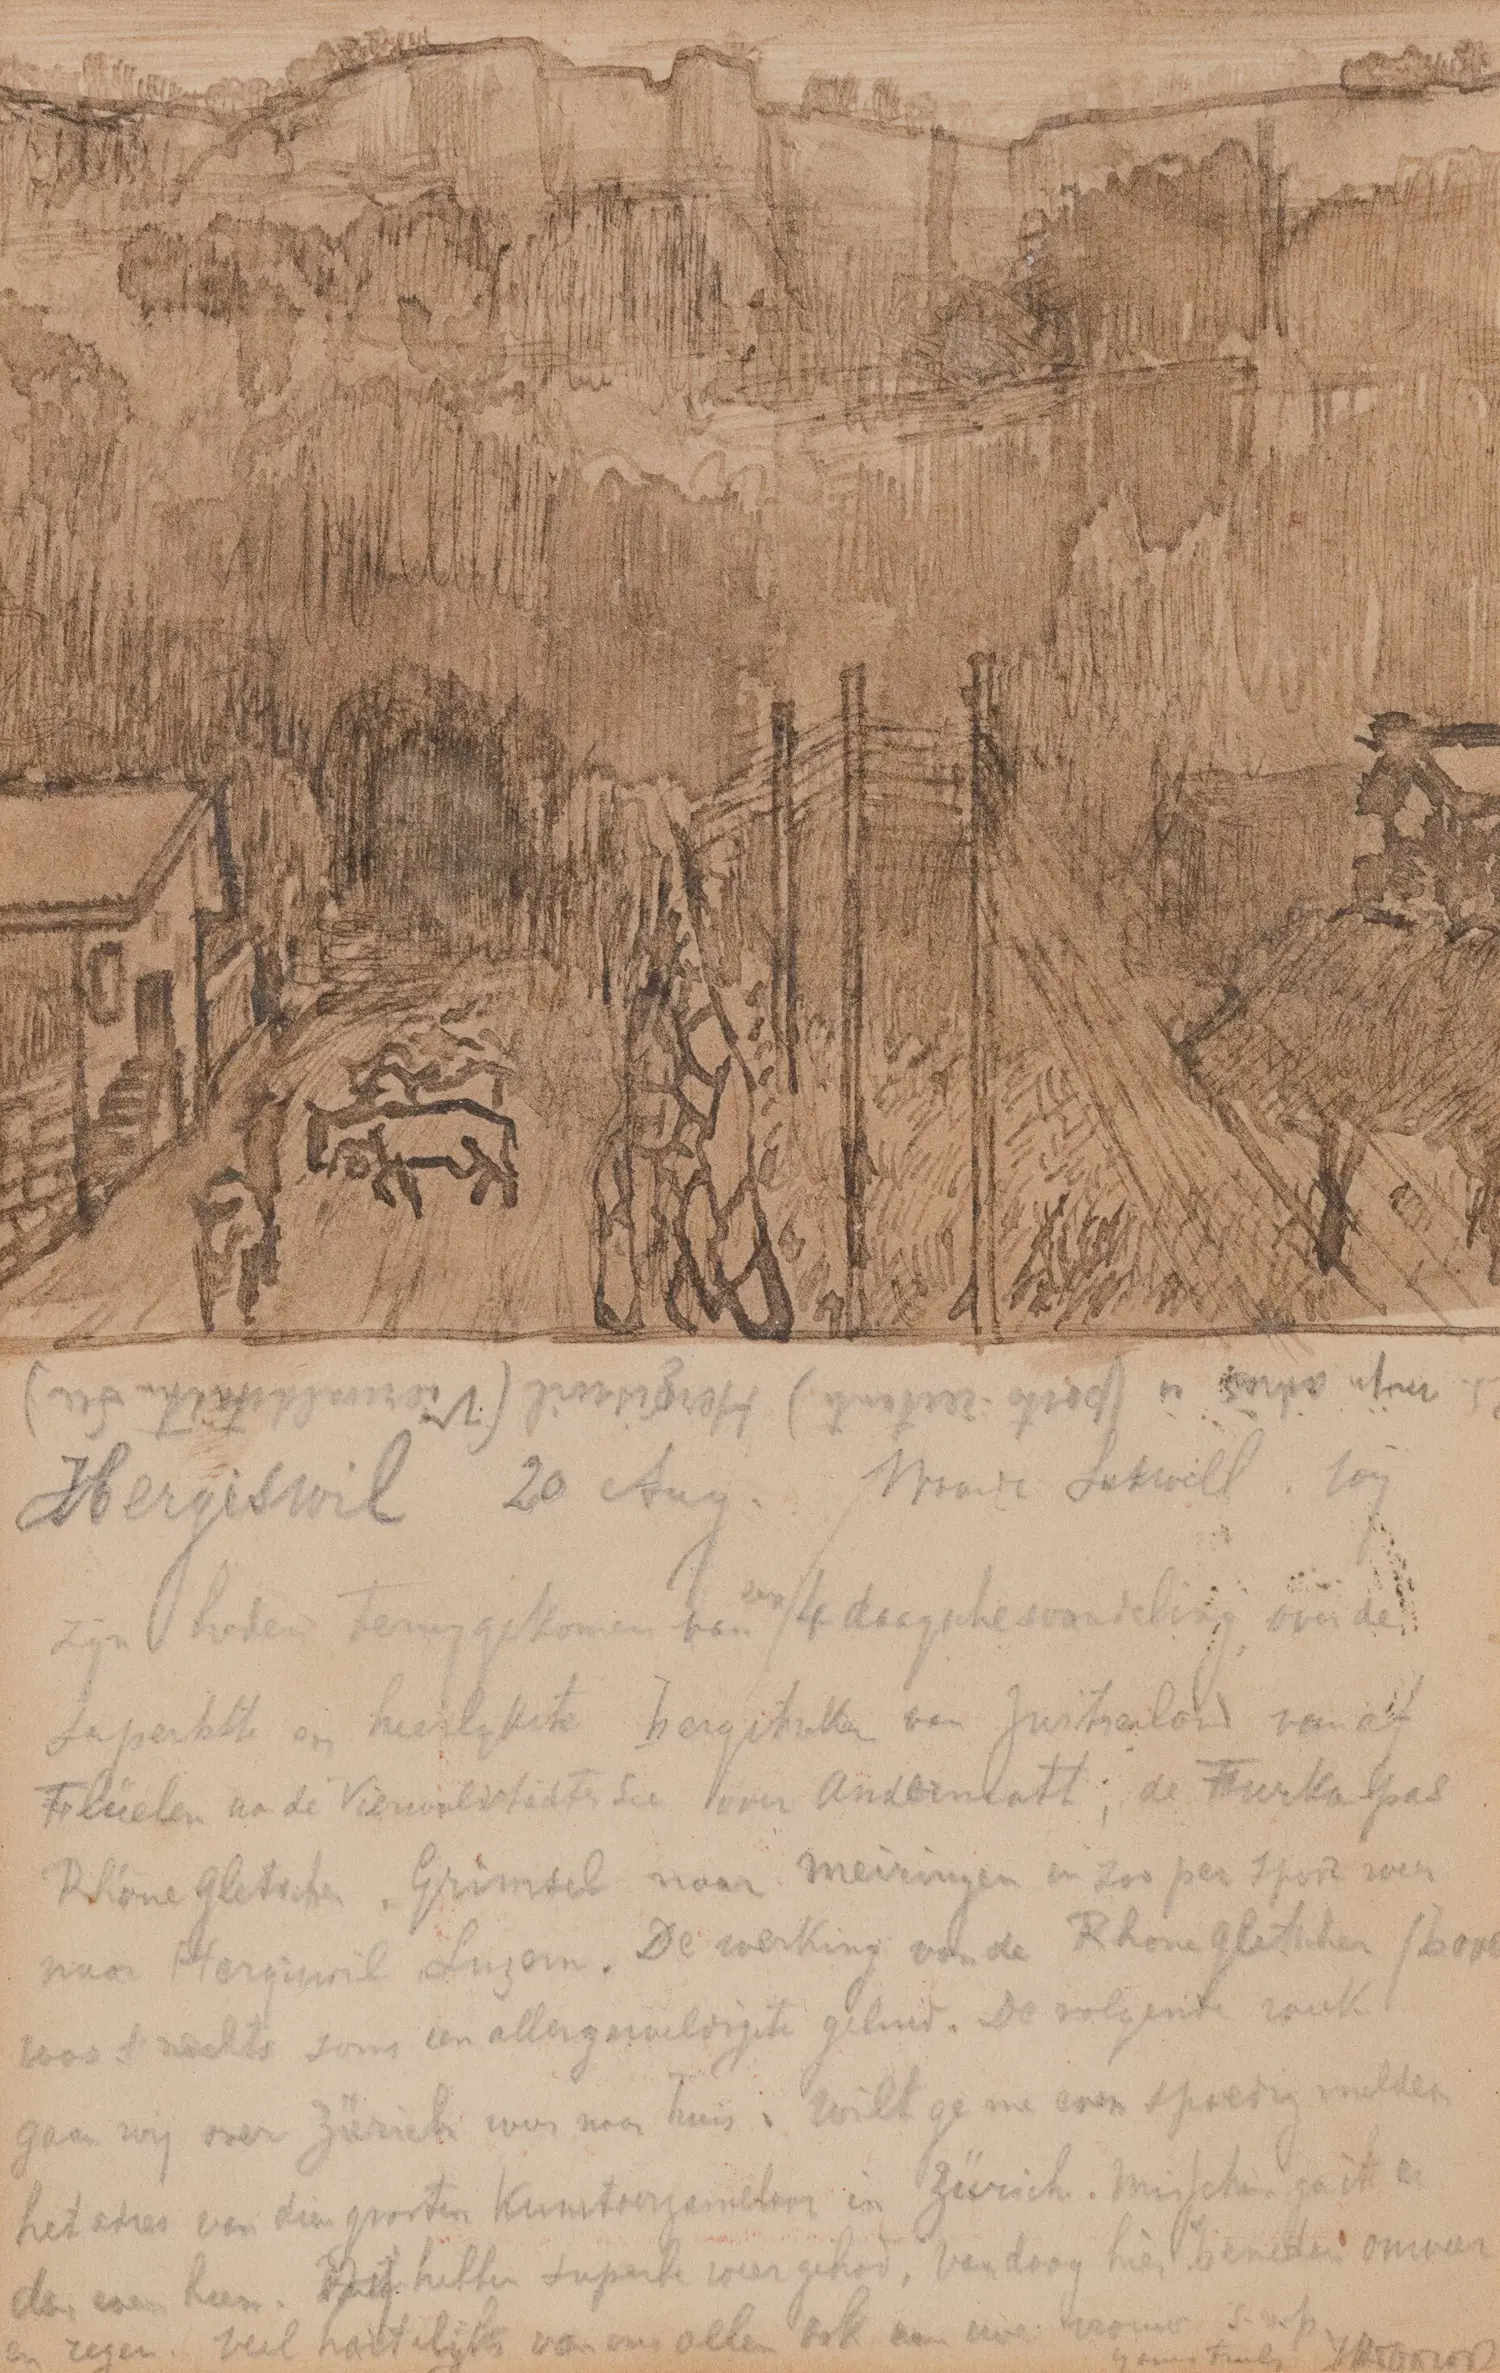 mijn adres is (poste restante) Hergiswil (Vierwaldstätter See)
Hergiswil 20 Aug. Waarde Wij
zijn heden teruggekomen van een 4 daagsche wandeling over de
superbste en heerlykste bergstreken van Zwitserland vanaf
Flüelen aan de Vierwaldstädter See over Andermatt, de Furka pas
Rhône gletscher, Grimsel naar Meiringen en zoo per spoor weer
naar Hergiswil Luzern. De werking van de Rhone gletscher /boven
was 's nachts soms een allergeweldigste geluid. De volgende week
gaan wij over Zürich weer naar huis. Wilt ge me even spoedig melden
het adres van dien grooten Kunstverzamelaar in Zürich. Misschien ga ik er
dan even heen. Wij hebben superbe weer gehad, Vandaag hier beneden onweer
en regen. Veel hartelijks van ons allen ook aan uwe vrouw
yours truly